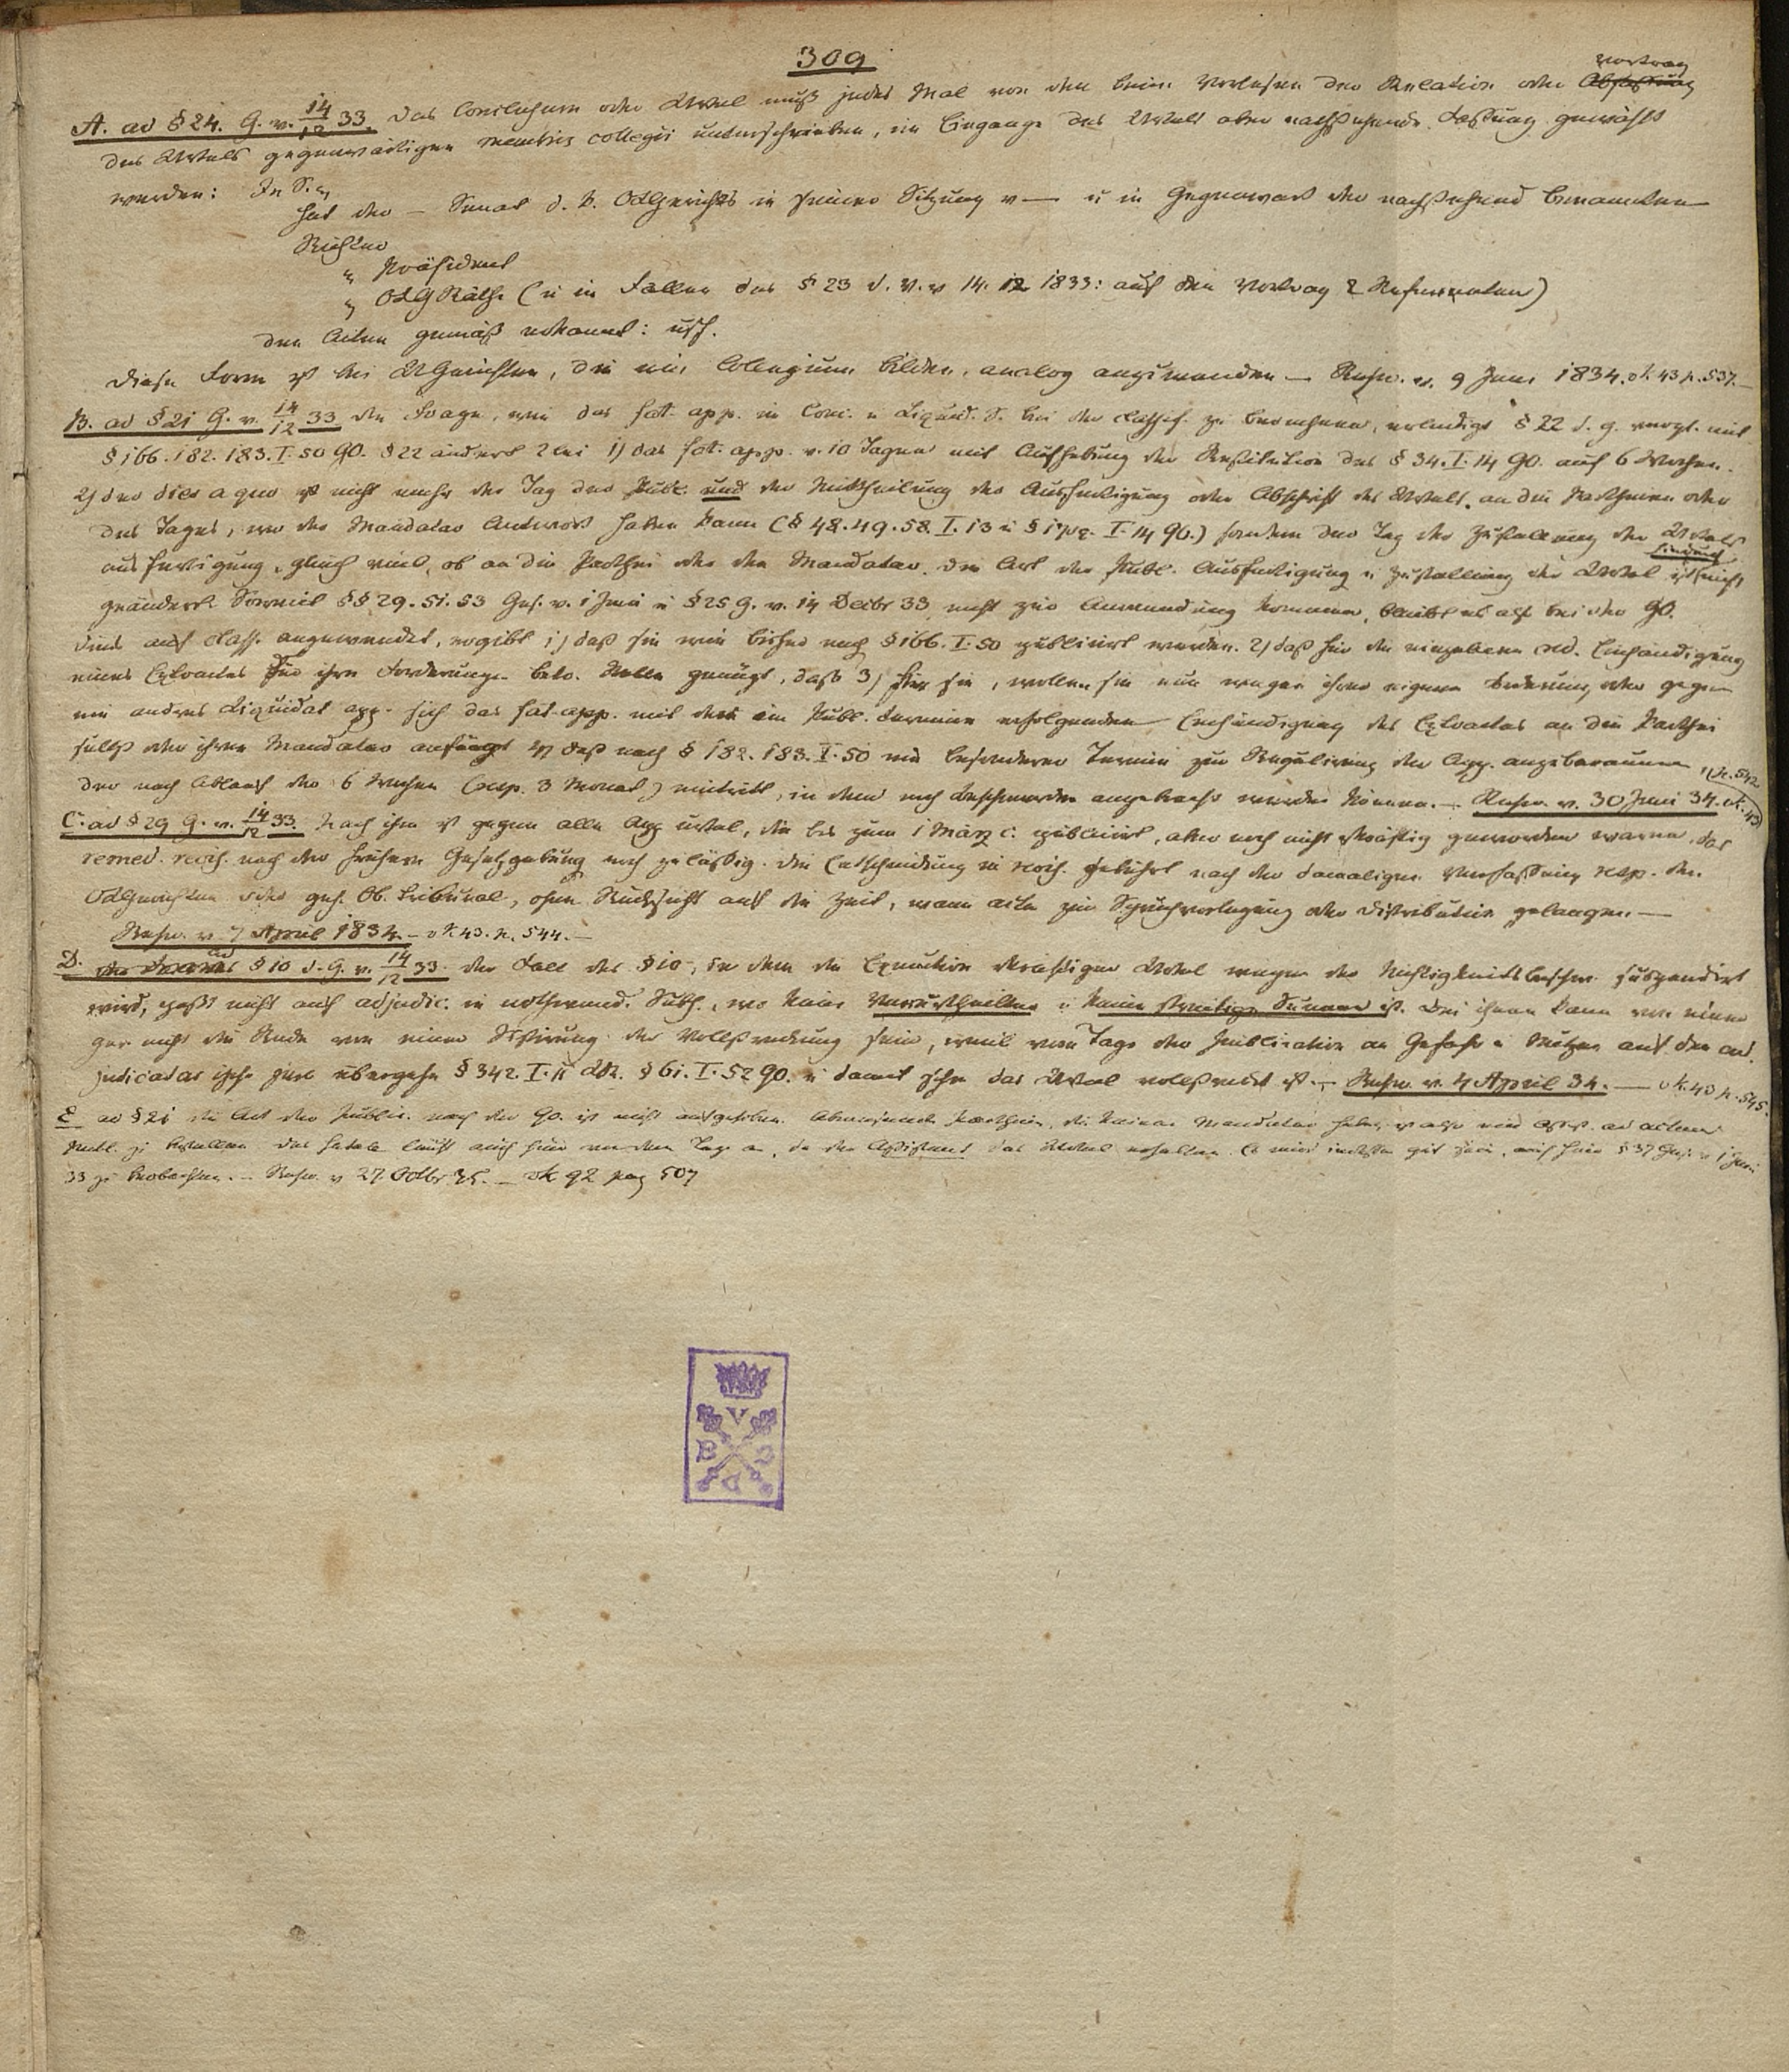 309
A. ad § 24. G. v. 14/12 33. das Conclusum oder Urtel muß jedes Mal von den beim Verlesen der Relation oder Abfassung Vortrag
des Urtels gegenwärtigen membris collegii unterschrieben, im Eingange des Urtels aber nachstehende Fassung gewählt
werden: In S.
hat der — Senat d. K. OLGerichts in seiner Sitzung v — u in Gegenwart der nachstehend benannten
Richter
" Präsident
" OLG Räthe (u in Fällen des § 23 d. V. v 14. 12 1833: auf den Vortrag 2 Referenten)
den Acten gemäß erkannt: usf.
diese Form ist bei UGerichten, die ein Collegium bilden, analog anzuwenden — Rescr. v. 9 Juni 1834. 43 p. 537.
B. ad § 21 G. v. 14/12 33 die Frage, wie das fat. app. in Conc. u Liquid. S. bei der Classif. zu berechnen, erledigt § 22 d. G. vergl. mit
§ 166. 182. 183. I. 50 GO. § 22 ändert 2lei 1) das fat. app. v. 10 Tagen mit Aufhebung der Restitution des § 34. I. 14 GO. auf 6 Wochen.
2) der dies a quo ist nicht mehr der Tag der Publ. und der Mittheilung der Ausfertigung oder Abschrift des Urtels an die Partheien oder
des Tages, wo der Mandatar Antwort haben kann (§ 48. 49. 58. I. 13 u I. 14 GO.) sondern der Tag der Zustellung der Urtels
ausfertigung, gleich viel, ob an die Parthei oder den Mandatar. die Art der Publ. Ausfertigung u Zustellung der Urtel ist nicht
geändert. Soweit §§ 29. 51. 53 Ges. v. 1 Juni u § 25 G. v. 14 Decbr 33 nicht zur Anwendung kommen, bleibt es also bei der GO.
dies auf Class. angewendet, ergibt 1) daß sie wie bisher nach § 166. I. 50 publicirt werden. 2) daß für die einzelnen Einhändigung
eines Extractes der ihre Forderungen betr. Stelle genügt, daß 3) für sie, wollen sie nun wegen ihrer eigenen Forderung oder gegen
ein anderes Liquidat app. sich das fat. app. mit der im Publ. Termine erfolgenden Einhändigung des Extractes an die Parthei
selbst oder ihren Mandatar anfängt daß nach § 182. 183. I. 50 ein besonderer Termin zur Regulirung der App. anzuberaumen, p. 542
der nach Ablauf der 6 Wochen (resp. 3 Monat) eintritt, in dem noch Beschwerden angebracht werden können. — Rescr. v. 30 Juni 34. 43
C. ad § 29 G. v. 14/12 33. Nach ihm ist gegen alle App urtel, die bis zum 1 März c. publicirt, aber noch nicht rkräftig geworden waren, das
remed. revis. nach der früheren Gesetzgebung noch zulässig. die Entscheidung in revis. gebührt nach der damaligen Verfassung resp. den
OLGerichten oder geh. Ob. Tribunal, ohne Rücksicht auf die Zeit, wann acta zur Spruchvorlegung oder Distribution gelangen. —
Rescr. v. 7 April 1834. — 43. p. 544. —
D. ad § 10 d. G. v. 14/12 33. der Fall des § 10, in dem die Execution rkräftiger Urtel wegen der Nichtigkeitsbeschw. suspendirt
wird, paßt nicht auf adjudic. in nothwend. Subh., wo keine Verurtheilten u keine streitige Summe ist. Bei ihnen kann von einer
gar nicht die Rede von einer Sistirung der Vollstreckung sein, weil vom Tage der Publication an Gefahr u Nutzen auf den ad.
judicatar ipso jure übergehn § 342. I. 11 LR. § 61. I. 52 GO. u damit schon das Urtel vollstreckt ist. — Rescr. v. 4 April 34. — 43 p. 545.
E ad § 21 die Art der Public. nach der GO. ist nicht aufgehoben. Abwesende Partheien, die keinen Mandatar haben, ad actum
Publ. zu bestellen. das fatale läuft auch hier von dem Tage an, da der Assistent das Urtel erhalten. Es wird indessen gut sein, auch hier § 37 Ges. v 1 Juni
33 zu beobachten. — Rescr. v 27 Octbr 35. — 92 pag 507
V
B